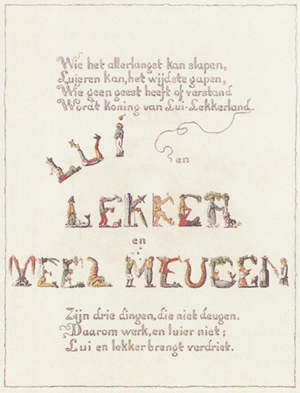 Wie het allerlangst kan slapen,
Luieren kan, het wijdste gapen,
Wie geen geest heeft of verstand
Wordt koning van Lui-Lekkerland.
LUI
en
LEKKER
en
VEEL MEUGEN
Zijn drie dingen, die niet deugen.
Daarom werk, en luier niet;
Lui en lekker brengt verdriet.